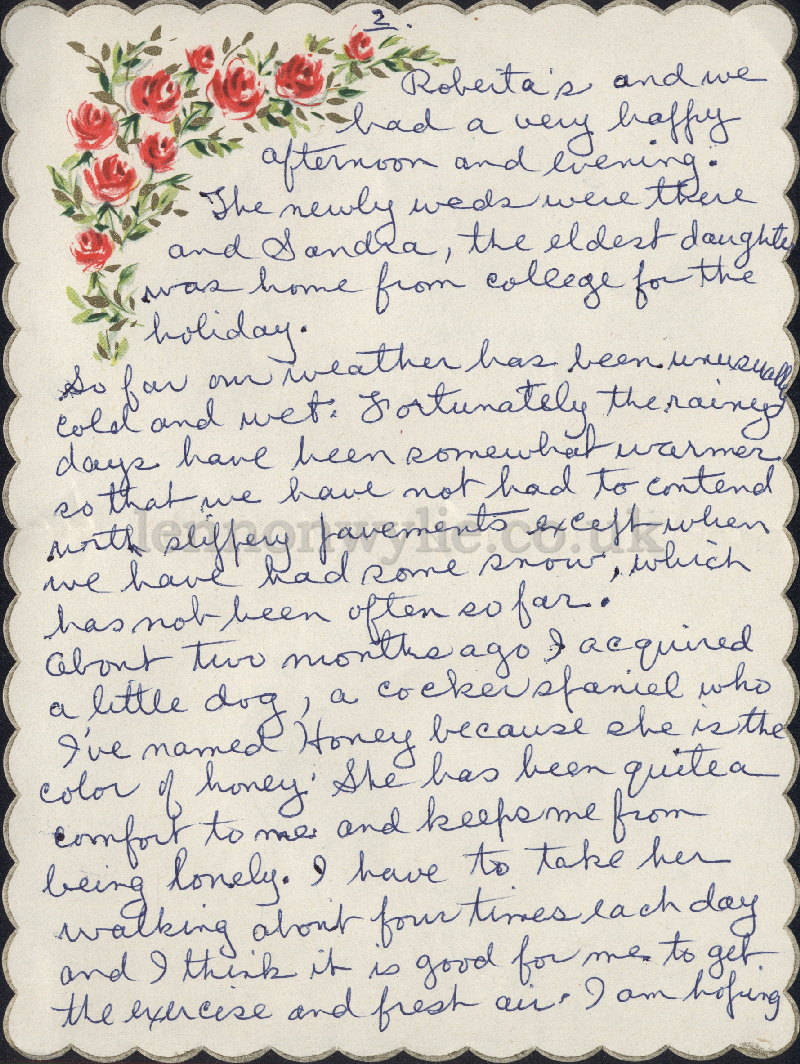 2.
Roberta's and we
had a very happy
afternoon and evening.
The newly weds were there
and Sandra, the eldest daughter
was home from college for the
holiday.
So far our weather has been unusually
cold and wet. Fortunately the rainey
days have been somewhat warmer
so that we have not had to contend
with slippery pavements except when
lennonwylie.co.uk
we have had some snow, which
has not been often so far.
About two months ago I acquired
a little dog, a cocker spaniel who
I've named Honey because she is the
color of honey. She has been quite a
comfort to me and keeps me from
being lonely. I have to take her
walking about four times each day
and I think it is good for me to get
the exercise and fresh air. I am hoping